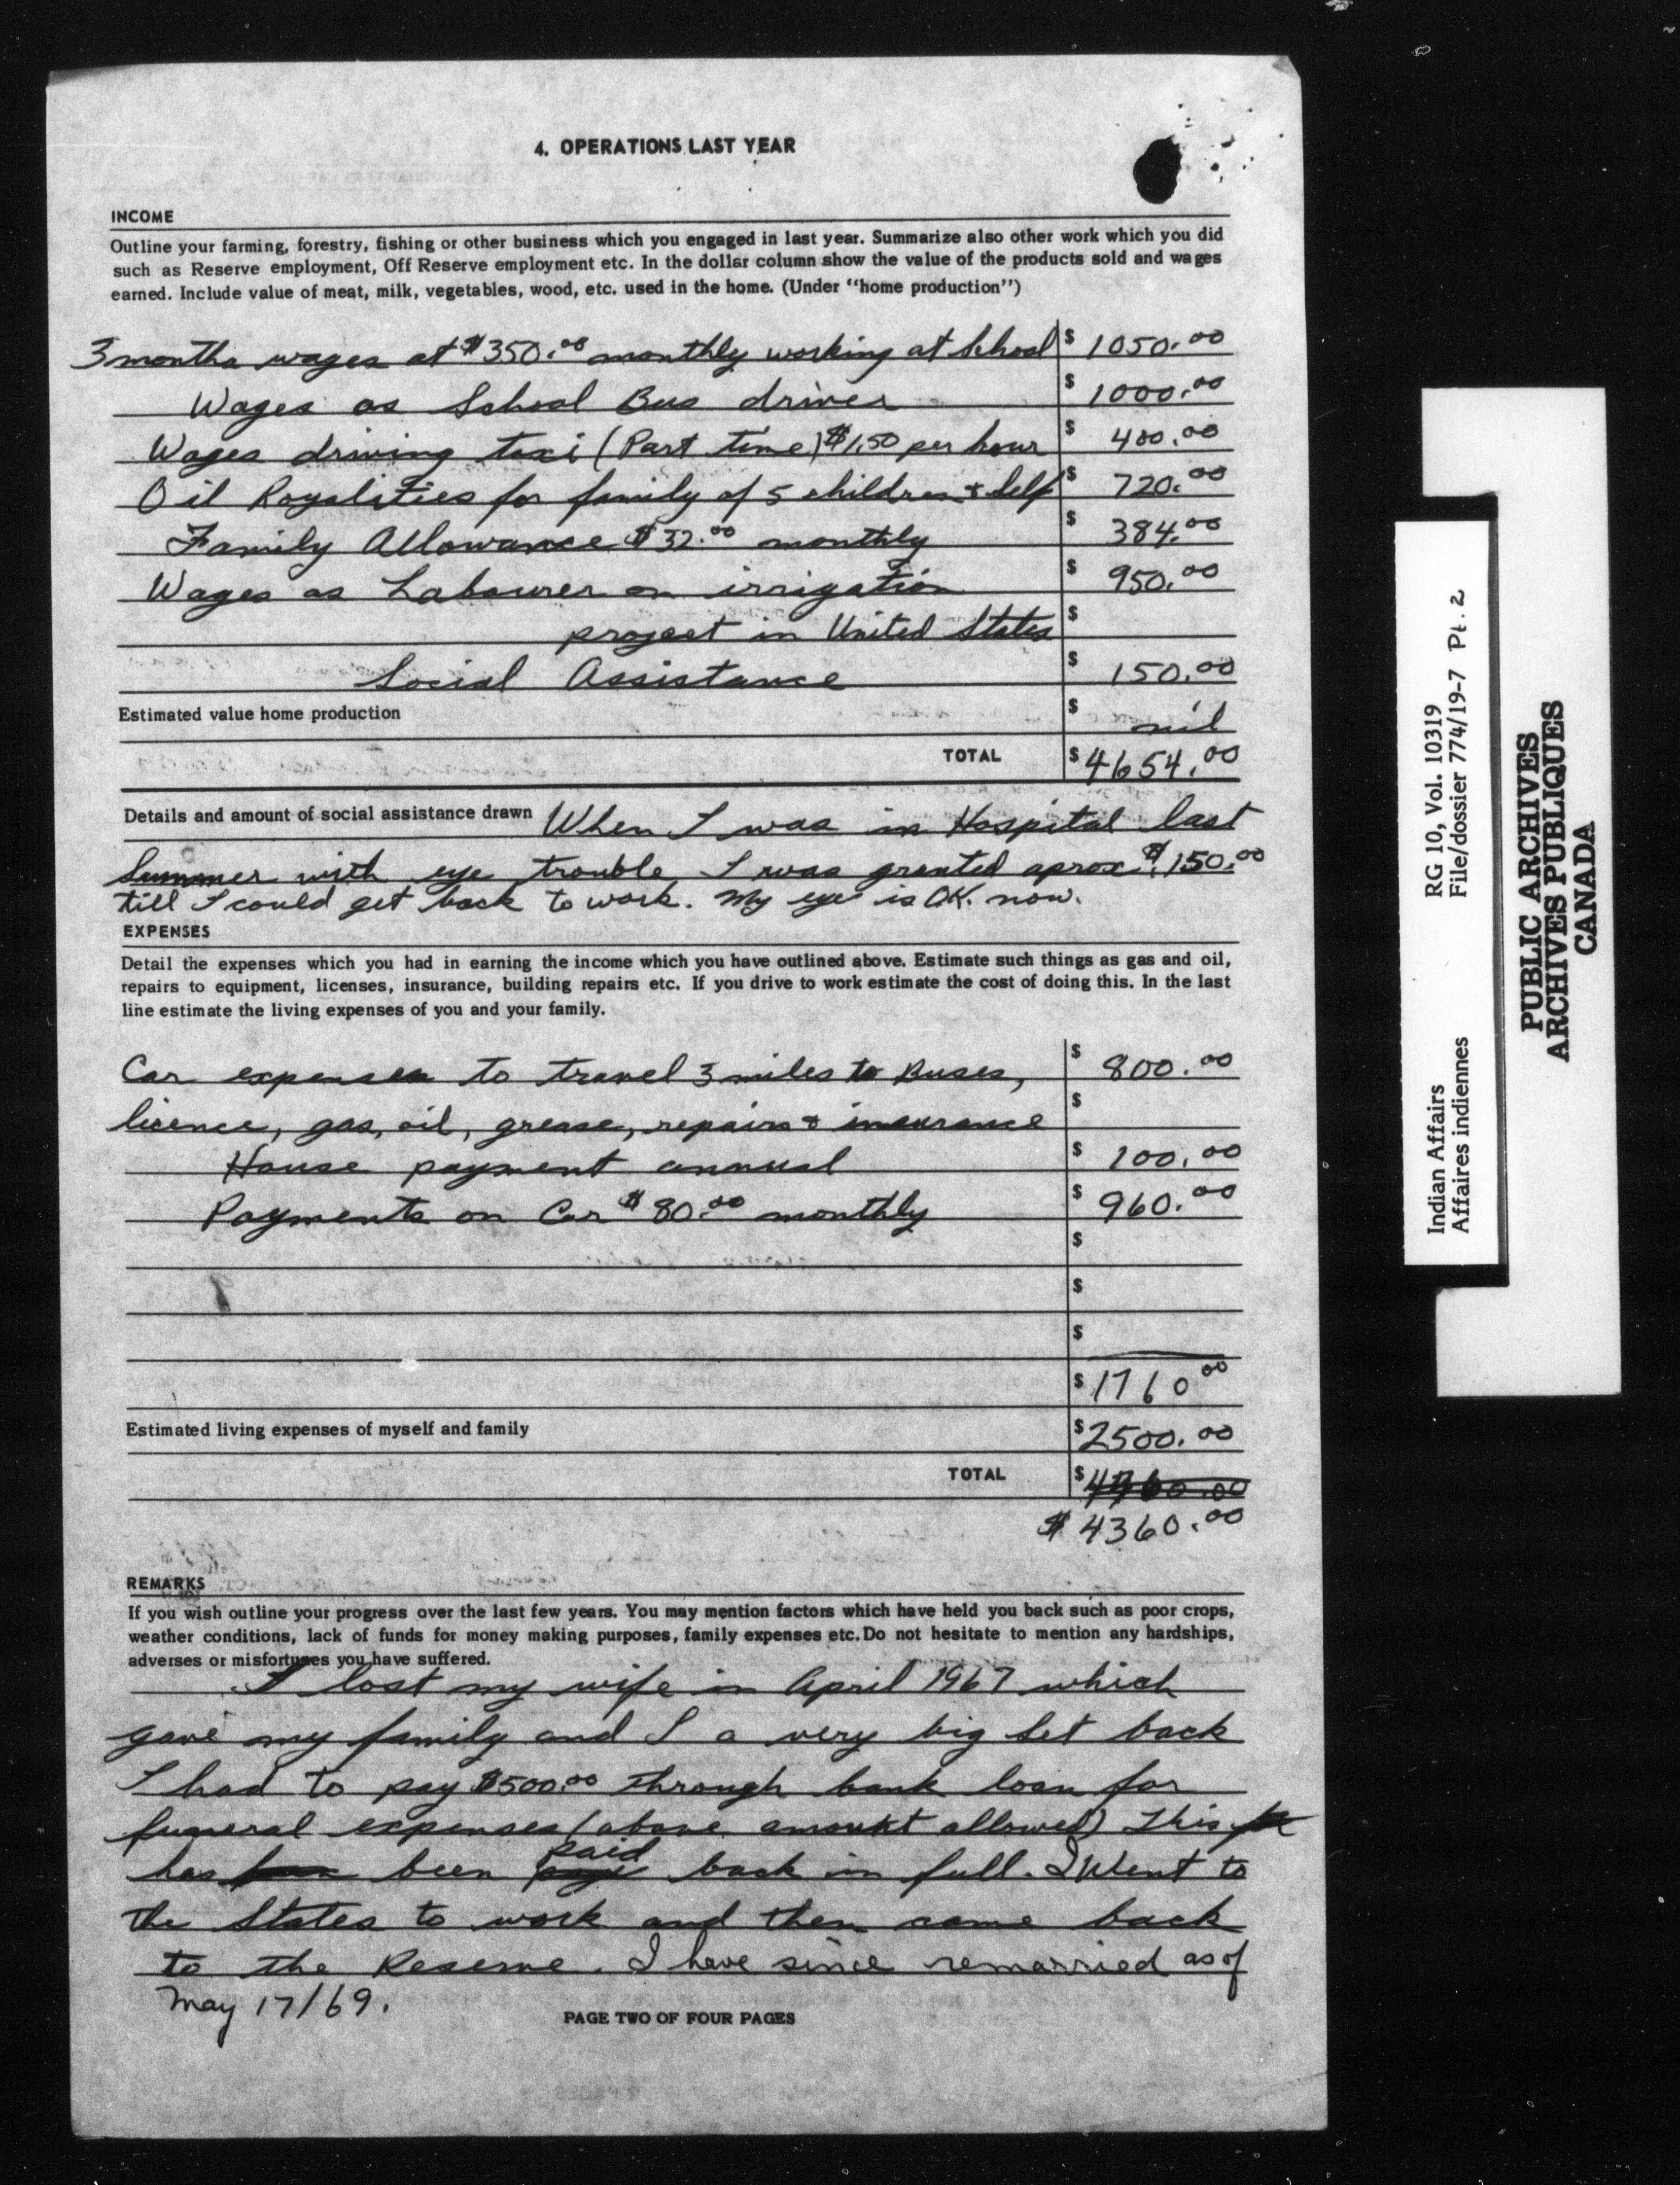 4. OPERATIONS LAST YEAR
INCOME
Outline your farming, forestry, fishing or other business which you engaged in last year. Summarize also other work which you did
such as Reserve employment, Off Reserve employment etc. In the dollar column show the value of the products sold and wages
earned. Include value of meat, milk, vegetables, wood, etc. used in the home. (Under "home production")
3 months wages at $350.00 monthly working at School $ 1050.00
Wages as School Bus driver $ 1000.00
Wages driving taxi (Part time) $1.50 per hour $ 400.00
Oil Royalities for family of 5 children & Self $ 720.00
Family Allowance $32.00 monthly $ 384.00
Wages as Labourer on irrigation $ 950.00
project in United States $
Social Assistance $ 150.00
Estimated value home production $ nil
TOTAL $ 4654.00
Details and amount of social assistance drawn When I was in Hospital last
Summer with eye trouble I was granted aprox $150.00
till I could get back to work. My eye is OK. now.
EXPENSES
Detail the expenses which you had in earning the income which you have outlined above. Estimate such things as gas and oil,
repairs to equipment, licenses, insurance, building repairs etc. If you drive to work estimate the cost of doing this. In the last
line estimate the living expenses of you and your family.
Car expenses to travel 3 miles to Buses, $ 800.00
licence, gas, oil, grease, repairs & insurance $
House payment annual $ 100.00
Payments on Car $80.00 monthly $ 960.00
$
$
$
$ 1760 00
Estimated living expenses of myself and family $ 2500.00
TOTAL $
$ 4360.00
REMARKS
If you wish outline your progress over the last few years. You may mention factors which have held you back such as poor crops,
weather conditions, lack of funds for money making purposes, family expenses etc. Do not hesitate to mention any hardships,
adverses or misfortunes you have suffered.
I lost my wife in April 1967 which
gave my family and I a very big set back
I had to pay $500.00 through bank loan for
funeral expenses (above amount allowed) This
has been paid back in full. I Went to
the States to work and then came back
to the Reserve. I have since remarried as of
May 17/69.
PAGE TWO OF FOUR PAGES
Indian Affairs RG 10, Vol. 10319
Affaires indiennes File/dossier 774/19-7 Pt. 2
PUBLIC ARCHIVES
ARCHIVES PUBLIQUES
CANADA